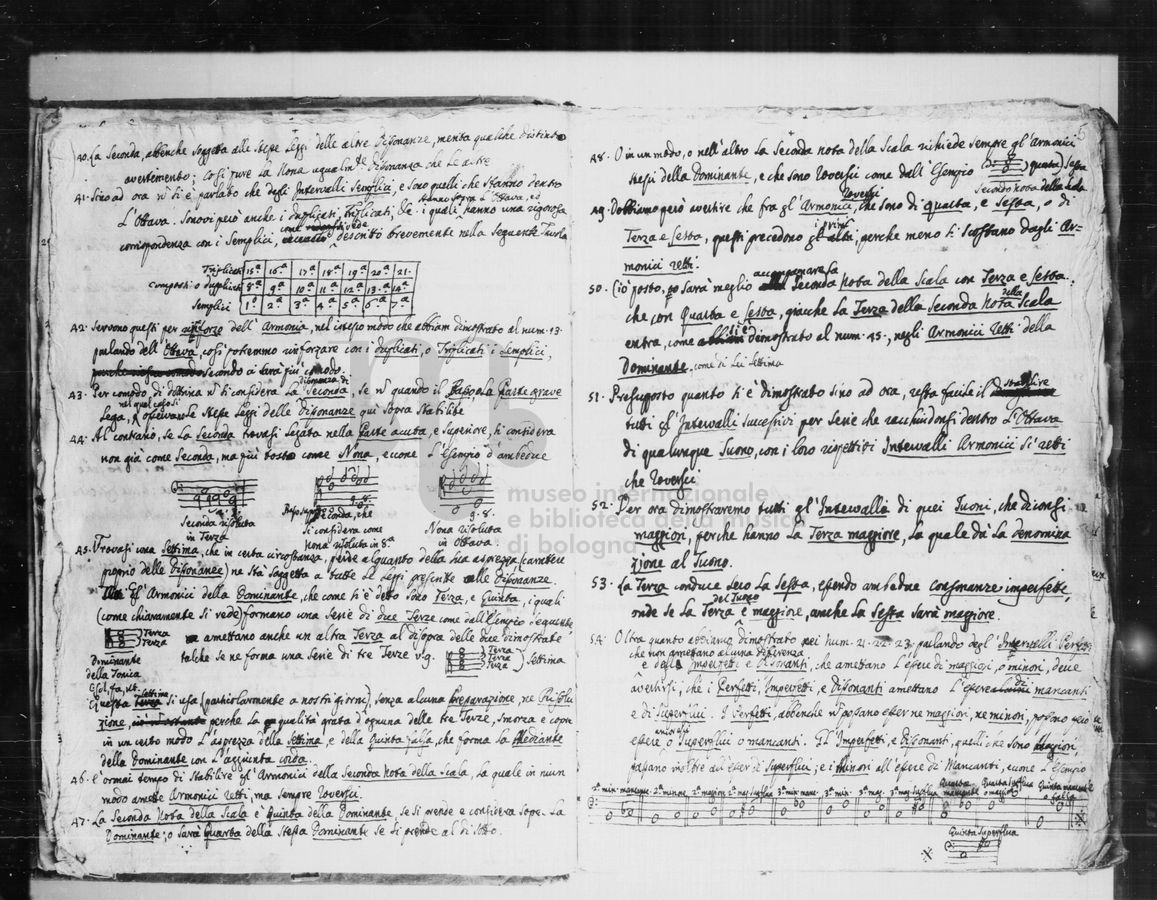 40. La Seconda, abbenche soggetta alle stesse Leggi delle altre Dissonanze, merita qualche distinto
avertimento; Così pure la Nona ugualm.te Dissonanza che Le altre
41. Sino ad ora si è parlato che degli Intervalli Semplici, e sono quelli che stanno dentro
L'Ottava. Sonovi però anche i duplicati, Triplicati, &c. i quali hanno una rigorosa
corrispondenza con i Semplici, descritto brevemente nella seguente Tavola
Triplicati 15.a 16.a 17.a 18.a 19.a 20.a 21.
Composti o duplicati 8.a 9.a 10.a 11.a 12.a 13.a 14.a
Semplici 1.a 2.a 3.a 4.a 5.a 6.a 7.a
42. Servono questi per rinforzo dell'Armonia, nel istesso modo che abbiam dimostrato al num. 13.
parlando dell'Ottava, così potremmo rinforzare con i duplicati, o Triplicati i Semplici,
secondo ci sarà più comodo.
43. Per comodo, di dottrina si considera La Seconda, se quando il Basso o La Parte grave
Lega, osservare Le stesse Leggi delle Dissonanze qui sopra stabilite
44. Al contrario, se La Seconda trovasi Legata nella Parte acuta, e Superiore, si considera
non già come Seconda, ma più tosto come Nona, eccone L'Esempio d'ambedue
Seconda risoluta
in Terza
Seconda, che
si considera come
nona risoluta in 8.a
9. 8.
Nona risoluta
in Ottava.
museo internazionale
e biblioteca della musica
di bologna
45. Trovasi una Settima, che in certa circostanza, perde alquanto della sua asprezza (carattere
proprio delle Dissonanze) ne sta soggetta a tutte Le Leggi prescritte alle Dissonanze.
Gl'Armonici della Dominante, che come si è detto sono Terza, e Quinta, i quali
(come chiaramente si vede) formano una serie di due Terze come dall'Esempio seguente
Terza
Terza
amettano anche un altra Terza al disopra delle due dimostrate
talche se ne forma una Serie di tre Terze v.g.
Terza
Terza
Terza
Settima
Dominante
della Tonica
Csol, fa, ut.
Questa Settima si usa (particolarmente a nostri giorni), senza alcuna Preparazione, ne Risolu
zione, perche La qualità grata d'ognuna delle tre Terze, smorza e copre
in un certo modo L'asprezza della Settima, e della Quinta falsa, che forma La Mediante
della Dominante con L'aggiunta corda.
46. È ormai tempo di stabilire gl'Armonici della Seconda Nota della Scala, La quale in niun
modo amette Armonici retti, ma sempre Roversci.
47. La Seconda Nota della Scala è Quinta della Dominante, se si prende e considera sopra La
Dominante; o sarà Quarta della stessa Dominante se si prende al di sotto.
48. O in un modo, o nell'altro La Seconda nota della Scala richiede sempre gl'Armonici
stessi della Dominante, e che sono Roversci come dall'Esempio
Seconda nota della Scala
49. Dobbiamo però avertire che fra gl'Armonici Roversci, che sono di quarta, e Sesta, o di
Terza e sesta, questi precedono i primi, perche meno si scostano dagli Ar=
monici retti.
50. Ciò posto, sarà meglio accompagnare la Seconda Nota della Scala con Terza e sesta,
che con Quarta e Sesta, giacche La Terza della Seconda Nota della Scala
entra, come si è dimostrato al num. 45., negli Armonici Retti della
Dominante. come di Lei settima
51. Presupposto quanto si è dimostrato sino ad ora, resta facile il stabilire
tutti gl'Intervalli successivi per serie che racchiudonsi dentro L'Ottava
di qualunque Suono, con i loro rispettivi Intervalli Armonici sì retti
che Roversci.
52. Per ora dimostraremo tutti gl'Intervalli di quei Tuoni, che diconsi
maggiori, perche hanno La Terza maggiore, La quale dà La denomina
zione al Tuono.
53. La Terza conduce seco La Sesta, essendo ambedue consonanze imperfette,
onde se La Terza del Tuono è maggiore, anche La Sesta sarà maggiore.
54. Oltra quanto abbiamo dimostrato nei num. 21. 22. 23. parlando degl'Intervalli Perfetti
che non amettano alcuna differenza
e degl'Imperfetti e Dissonanti, che amettano l'essere di maggiori, o minori, deve
avertirsi, che i Perfetti, Imperfetti, e Dissonanti amettano L'essere di mancanti
e di Superflui. I Perfetti, abbenche non possano essere ne maggiori, ne minori, possono però
essere o Superflui o mancanti. Gl'Imperfetti, e Dissonanti, quelli che sono Maggiori
passano inoltre all'essere di Superflui; e i Minori all'essere di Mancanti, eccone L'Esempio
2.a min: mancante. 2.a minore. 2.a maggiore 2.a mag: superflua 3.a min: manc. 3.a min. 3.a mag. 3.a mag: superflua Quarta mancante Quarta Superflua o maggiore Quinta mancante o falsa
Quinta Superflua